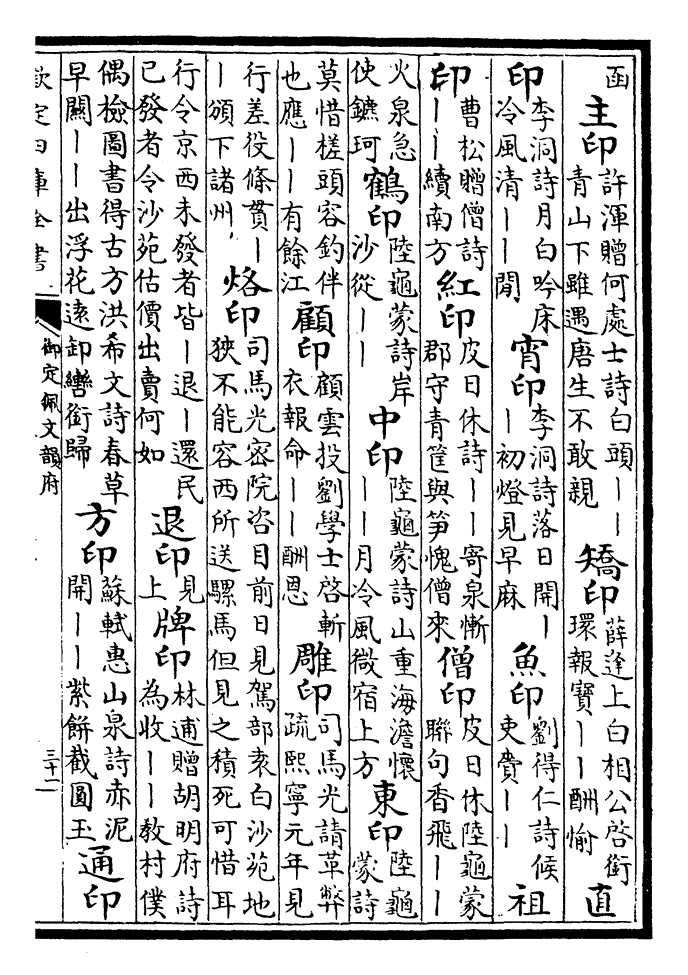 函 主印 許渾贈何處士詩白頭｜｜青山下雖遇唐生不敢親 矯印 薛逢上白相公啓銜環報寶｜｜酬愉 直
印 李洞詩月白吟床冷風清｜｜閒 宵印 李洞詩落日開｜｜初燈見早麻 魚印 劉得仁詩候吏費｜｜ 祖
印 曹松贈僧詩｜｜續南方 紅印 皮日休詩｜｜寄泉慚郡守青筐與筍愧僧來 僧印 皮日休陸龜蒙聯句香飛｜｜
火泉急使鑣珂 鶴印 陸龜蒙詩岸沙從｜｜ 中印 陸龜蒙詩山重海澹懷｜｜月冷風微宿上方 東印 陸龜蒙詩
莫惜槎頭容釣伴也應｜｜有餘江 顧印 顧雲投劉學士啓斬衣報命｜｜酬恩 雕印 司馬光請革弊疏熙寧元年見
行差役條貫｜｜頒下諸州 烙印 司馬光密院咨目前日見駕部袁白沙苑地狹不能容西所送騾馬但見之積死可惜耳
行令京西未發者皆｜退｜還民已發者令沙苑估價出賣何如 退印 見上 牌印 林逋贈胡明府詩為收｜｜教村僕
偶檢圖書得古方洪希文詩春草早關｜｜出浮花遠卸轡銜歸 方印 蘇軾惠山泉詩赤泥開｜｜紫餅截圓玉 通印
欽定四庫全書 御定佩文韻府 三十一